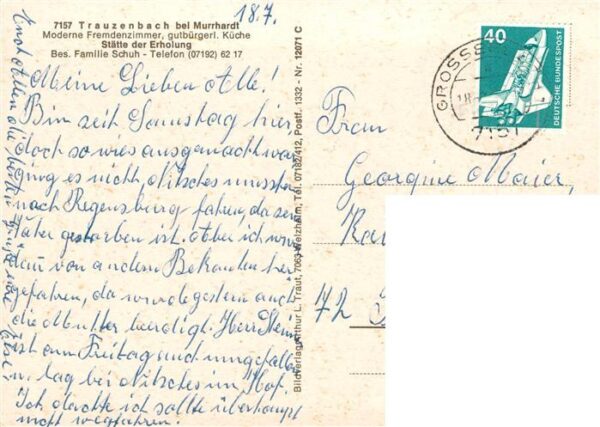 18.7.
7157 Trauzenbach bei Murrhardt
Moderne Fremdenzimmer, gutbürgerl. Küche
Stätte der Erholung
Bes. Familie Schuh - Telefon (07192) 62 17
Meine Lieben Alle!
Bin seit Samstag hier,
doch so wies ausgemacht war
ging es nicht, mussten
nach Regensburg fahren, da sein
Vater gestorben ist. Aber ich
von andern Bekannten her
gefahren, da wurde gestern auch
die Mutter beerdigt. Herr Stein
ist am Freitag auch umgefallen
u. lag bei im Hof.
Ich dachte ich sollte überhaupt
nicht wegfahren.
Euch Allen die Grüße
Bildverlag Arthur L. Traut, 7063 Welzheim, Tel. 07182/412, Postf. 1332 - Nr. 12071 C
40
DEUTSCHE BUNDESPOST
7157
Frau
Georgine Maier,
72